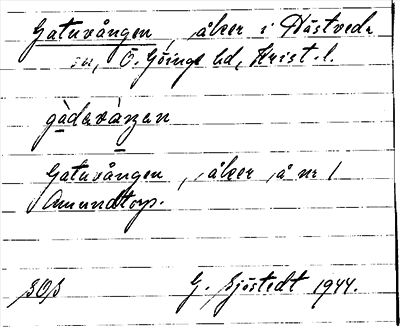 Gatuvången, åker i Hästveda
sn, Ö. Göinge hd, Krist. l.
gàdavàŋŋan
Gatuvången, åker å nr 1
Amundtorp.
G. Sjöstedt 1944.